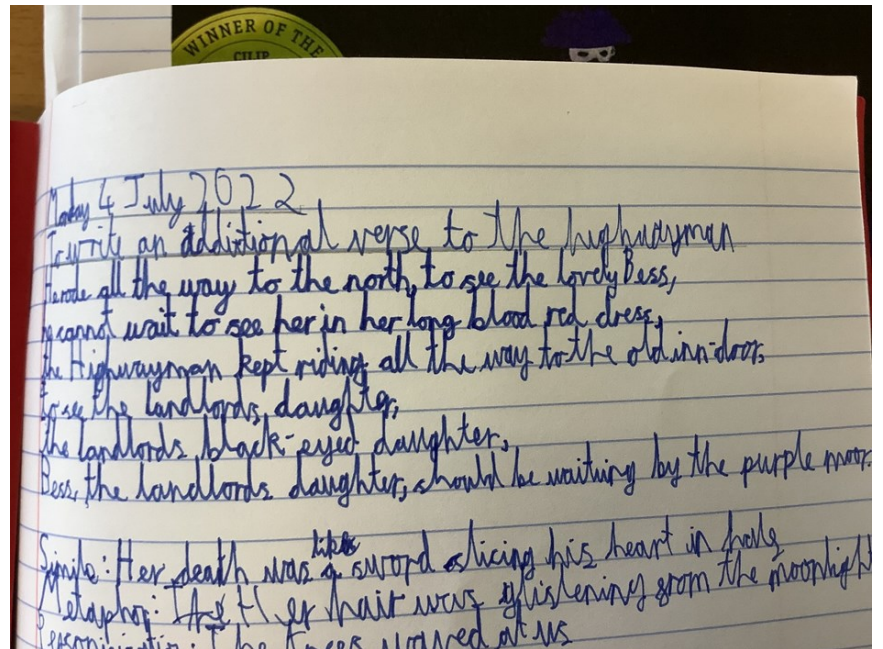 WINNER OF THE
CILIP
Monday 4 July 2022
To write an additional verse to the highwayman
He rode all the way to the north, to see the lovely Bess,
he cannot wait to see her in her long blood red dress,
the Highwayman kept riding all the way to the old inn-door,
to see the landlords, daughter,
the landlords black-eyed daughter,
Bess, the landlords daughter, should be waiting by the purple moor.
Simile: Her death was like a sword slicing his heart in half
Metaphor: Her hair was glistening from the moonlight
Personification: The trees waved at us